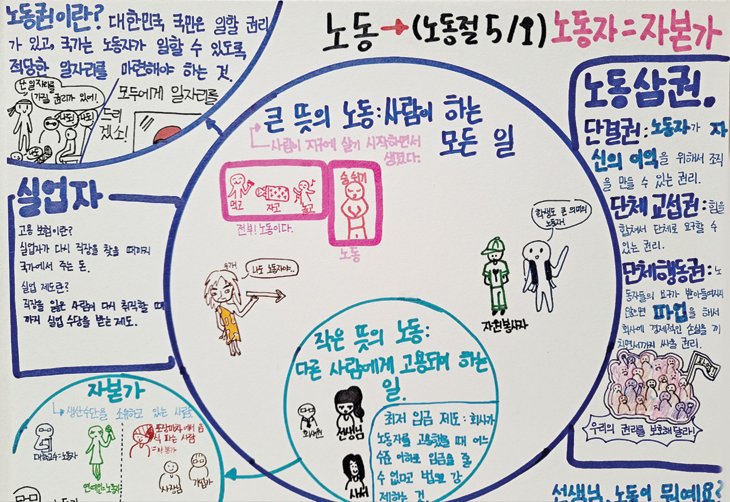 노동권이란? 대한민국 국민은 일할 권리
가 있고, 국가는 노동자가 일할 수 있도록
적당한 일자리를 마련해야 하는 것.
난 일자리를
가질 권리가 있어!
모두에게 일자리를
드리
겠소!
노동→(노동절 5/1) 노동자=자본가
큰 뜻의 노동: 사람이 하는
모든 일
사람이 지구에 살기 시작하면서
생겼다.
먹고
자고
놀고
전부! 노동이다.
숨쉬기
노동
나도 노동자야..
학생도 큰 의미의
노동자!
자원봉사자
노동삼권.
단결권: 노동자가 자
신의 이익을 위해서 조직
을 만들 수 있는 권리.
단체 교섭권: 힘을
합쳐서 단체로 요구할 수
있는 권리.
단체행동권: 노
동자들의 요구가 받아들여지지
않으면 파업을 해서
회사에 경제적인 손실을 끼
치면서까지 싸울 권리.
우리의 권리를 보호해달라!
실업자
고용 보험이란?
실업자가 다시 직장을 찾을 때까지
국가에서 주는 돈.
실업 제도란?
직장을 잃은 사람이 다시 취직할 때
까지 실업 수당을 받는 제도.
작은 뜻의 노동:
다른 사람에게 고용되어 하는
일.
회사원
선생님
사서
최저 임금 제도: 회사가
노동자를 고용했을 때 어느
수준 이하로 임금을 줄
수 없다고 법으로 강
제하는 것.
자본가
생산수단을 소유하고 있는 사람
대학교수=노동자
연예인=노동자
사장님
선생님, 노동이 뭐예요?